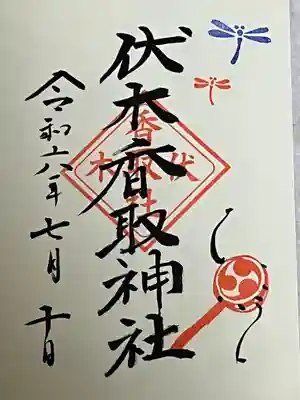 伏木香取神社
伏木
香取
令和六年七月十日